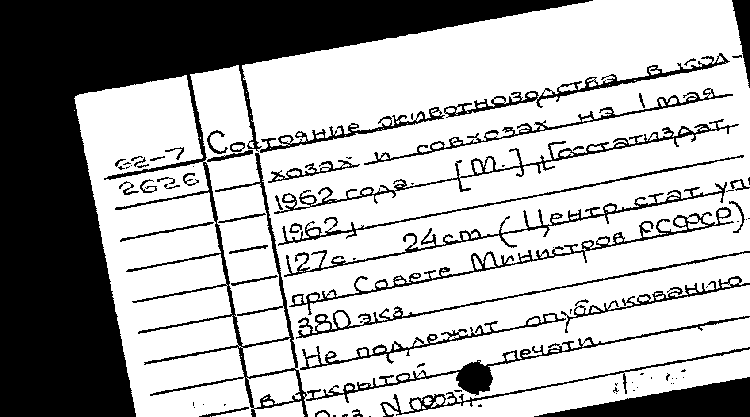 62-7 Состояние животноводства в кол-
2626 хозах и совхозах на 1 мая
1962 года. [М.], Госстатиздат,
1962 г.
127 с. 24 cm (Центр. стат. упр.
при Совете Министров РСФСР)
380 экз.
Не подлежит опубликованию
в открытой печати.
Экз. N 00037.